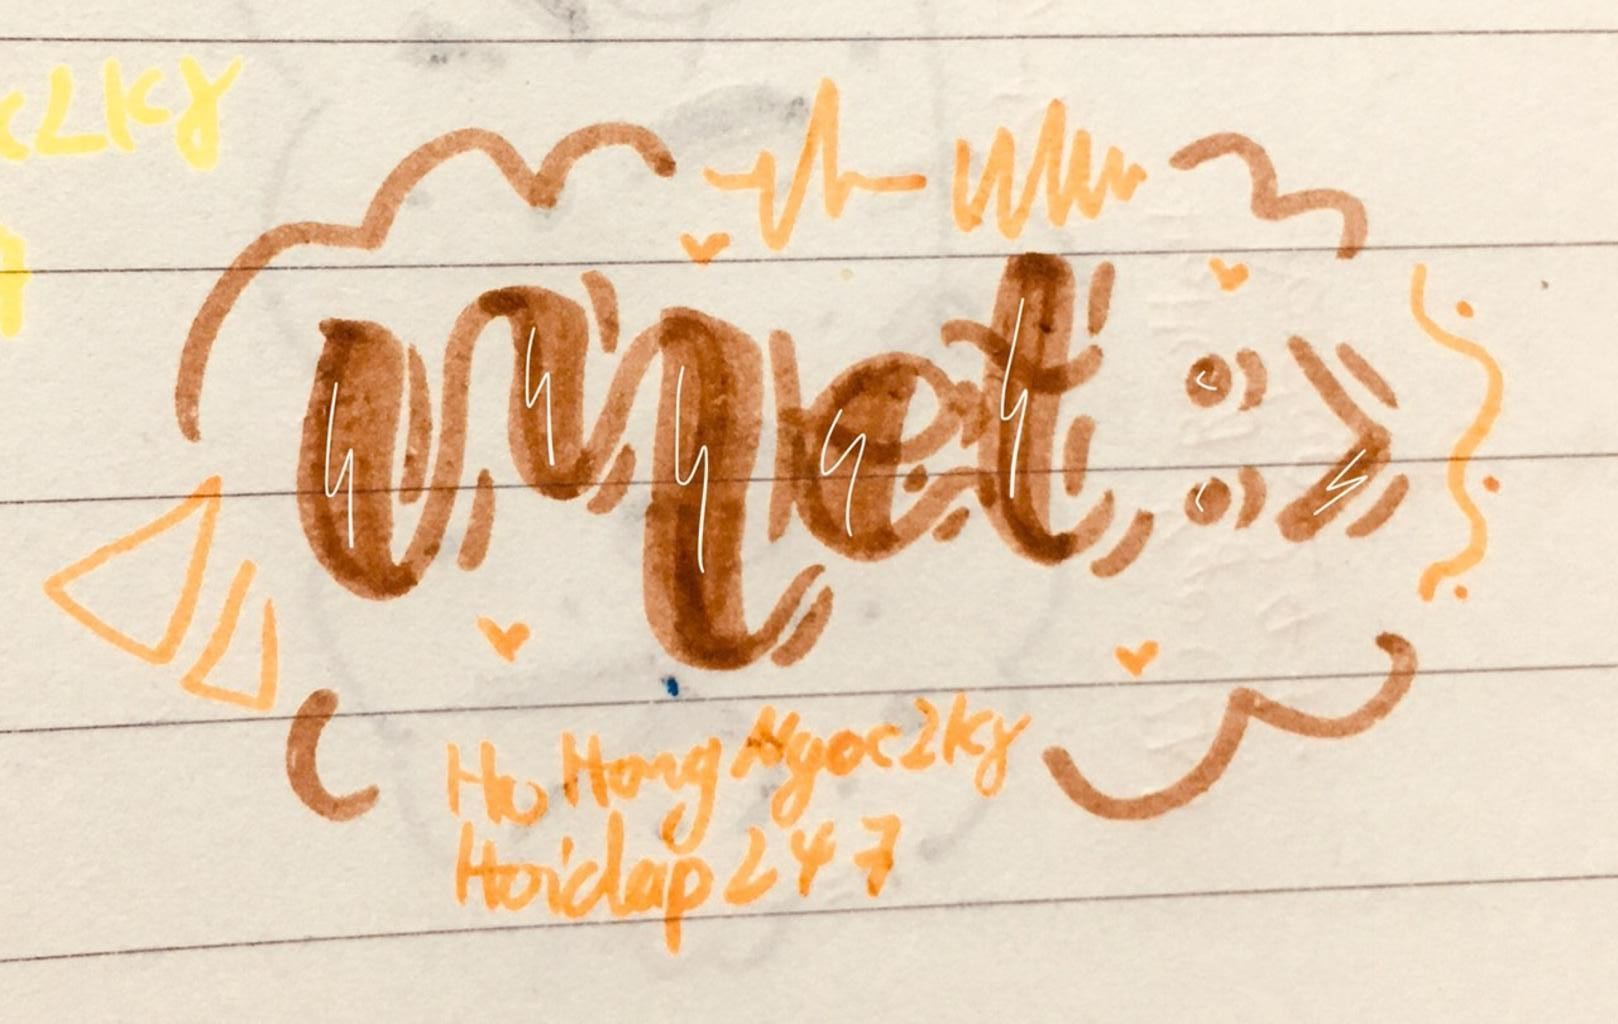 c2ky
7
Met :>
Ho Hong Ngoc2ky
Hoidap247